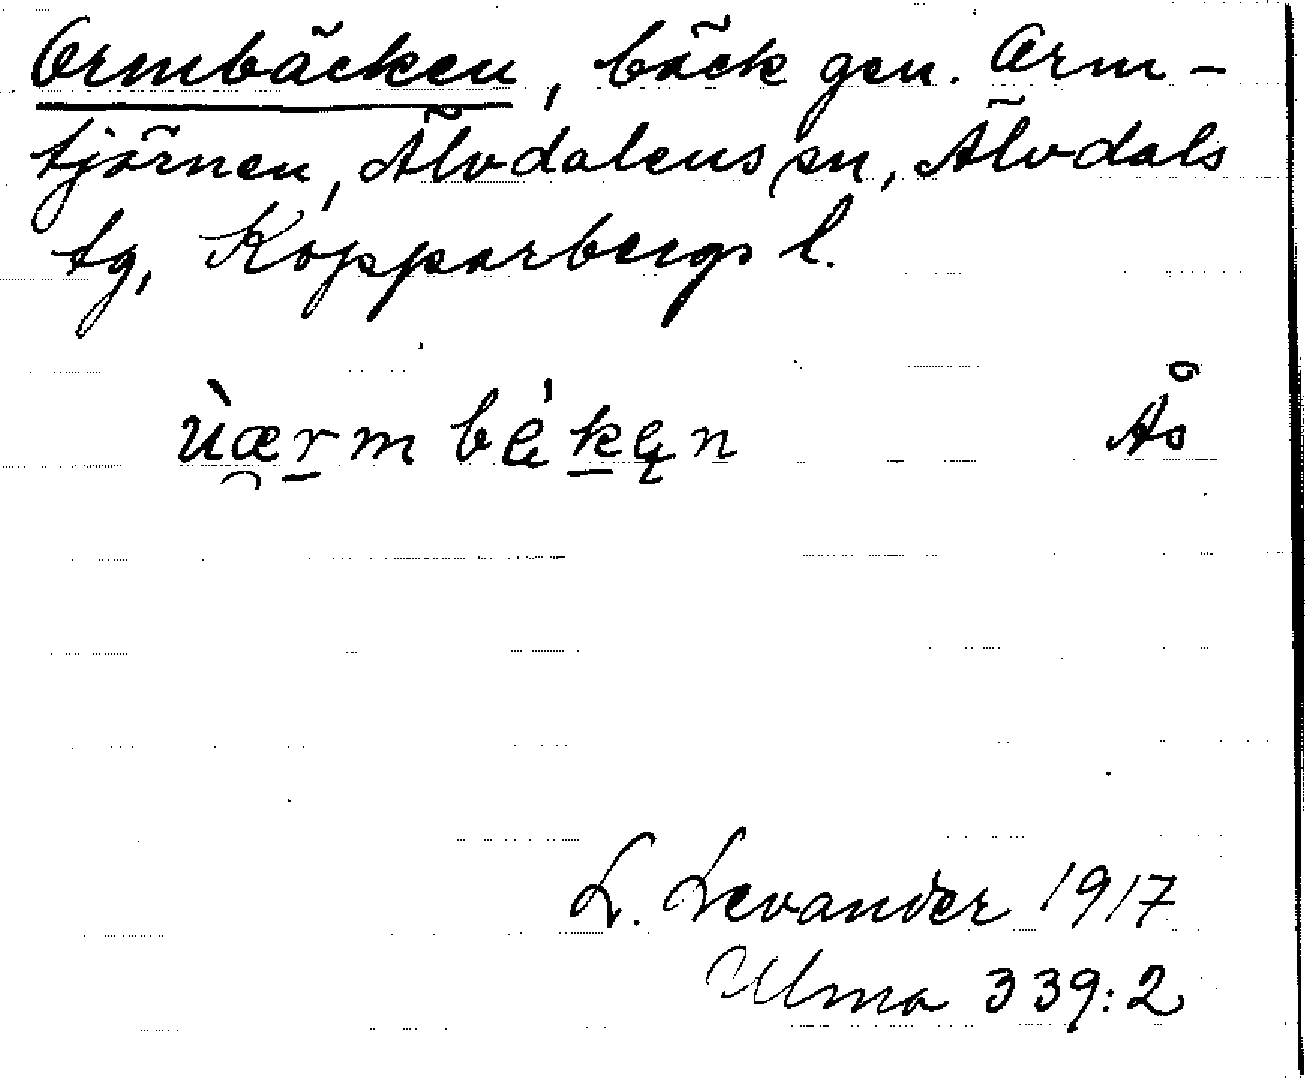 Ormbäcken, bäck gen. Orm-
tjörnen, Älvdalens sn, Älvdals
tg, Kopparbergs l.
ùæ̯r̲m bé̩k̲ę̩n Ås
L. Levander 1917
Ulma 339:2